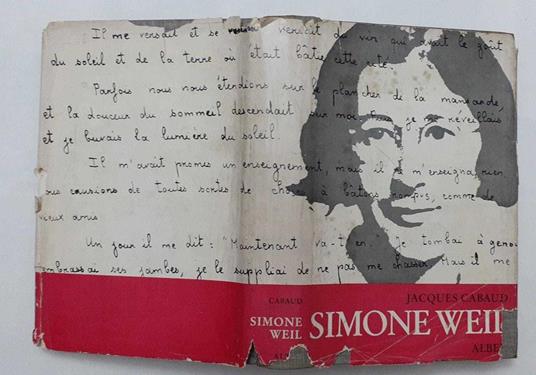 Il me versait et se versait du vin qui avait le goût
du soleil et de la terre où était bâtie cette cité.
Parfois nous nous étendions sur le plancher de la mansarde,
et la douceur du sommeil descendait sur moi. Puis je me réveillais
et je buvais la lumière du soleil.
Il m'avait promis un enseignement, mais il ne m'enseigna rien.
Nous causions de toutes sortes de choses, à bâtons rompus, comme de
vieux amis.
Un jour il me dit : "Maintenant va-t-en". Je tombai à genou
embrassai ses jambes, je le suppliai de ne pas me chasser. Mais il me
CABAUD
SIMONE
WEIL
AL
JACQUES CABAUD
SIMONE WEIL
ALBE